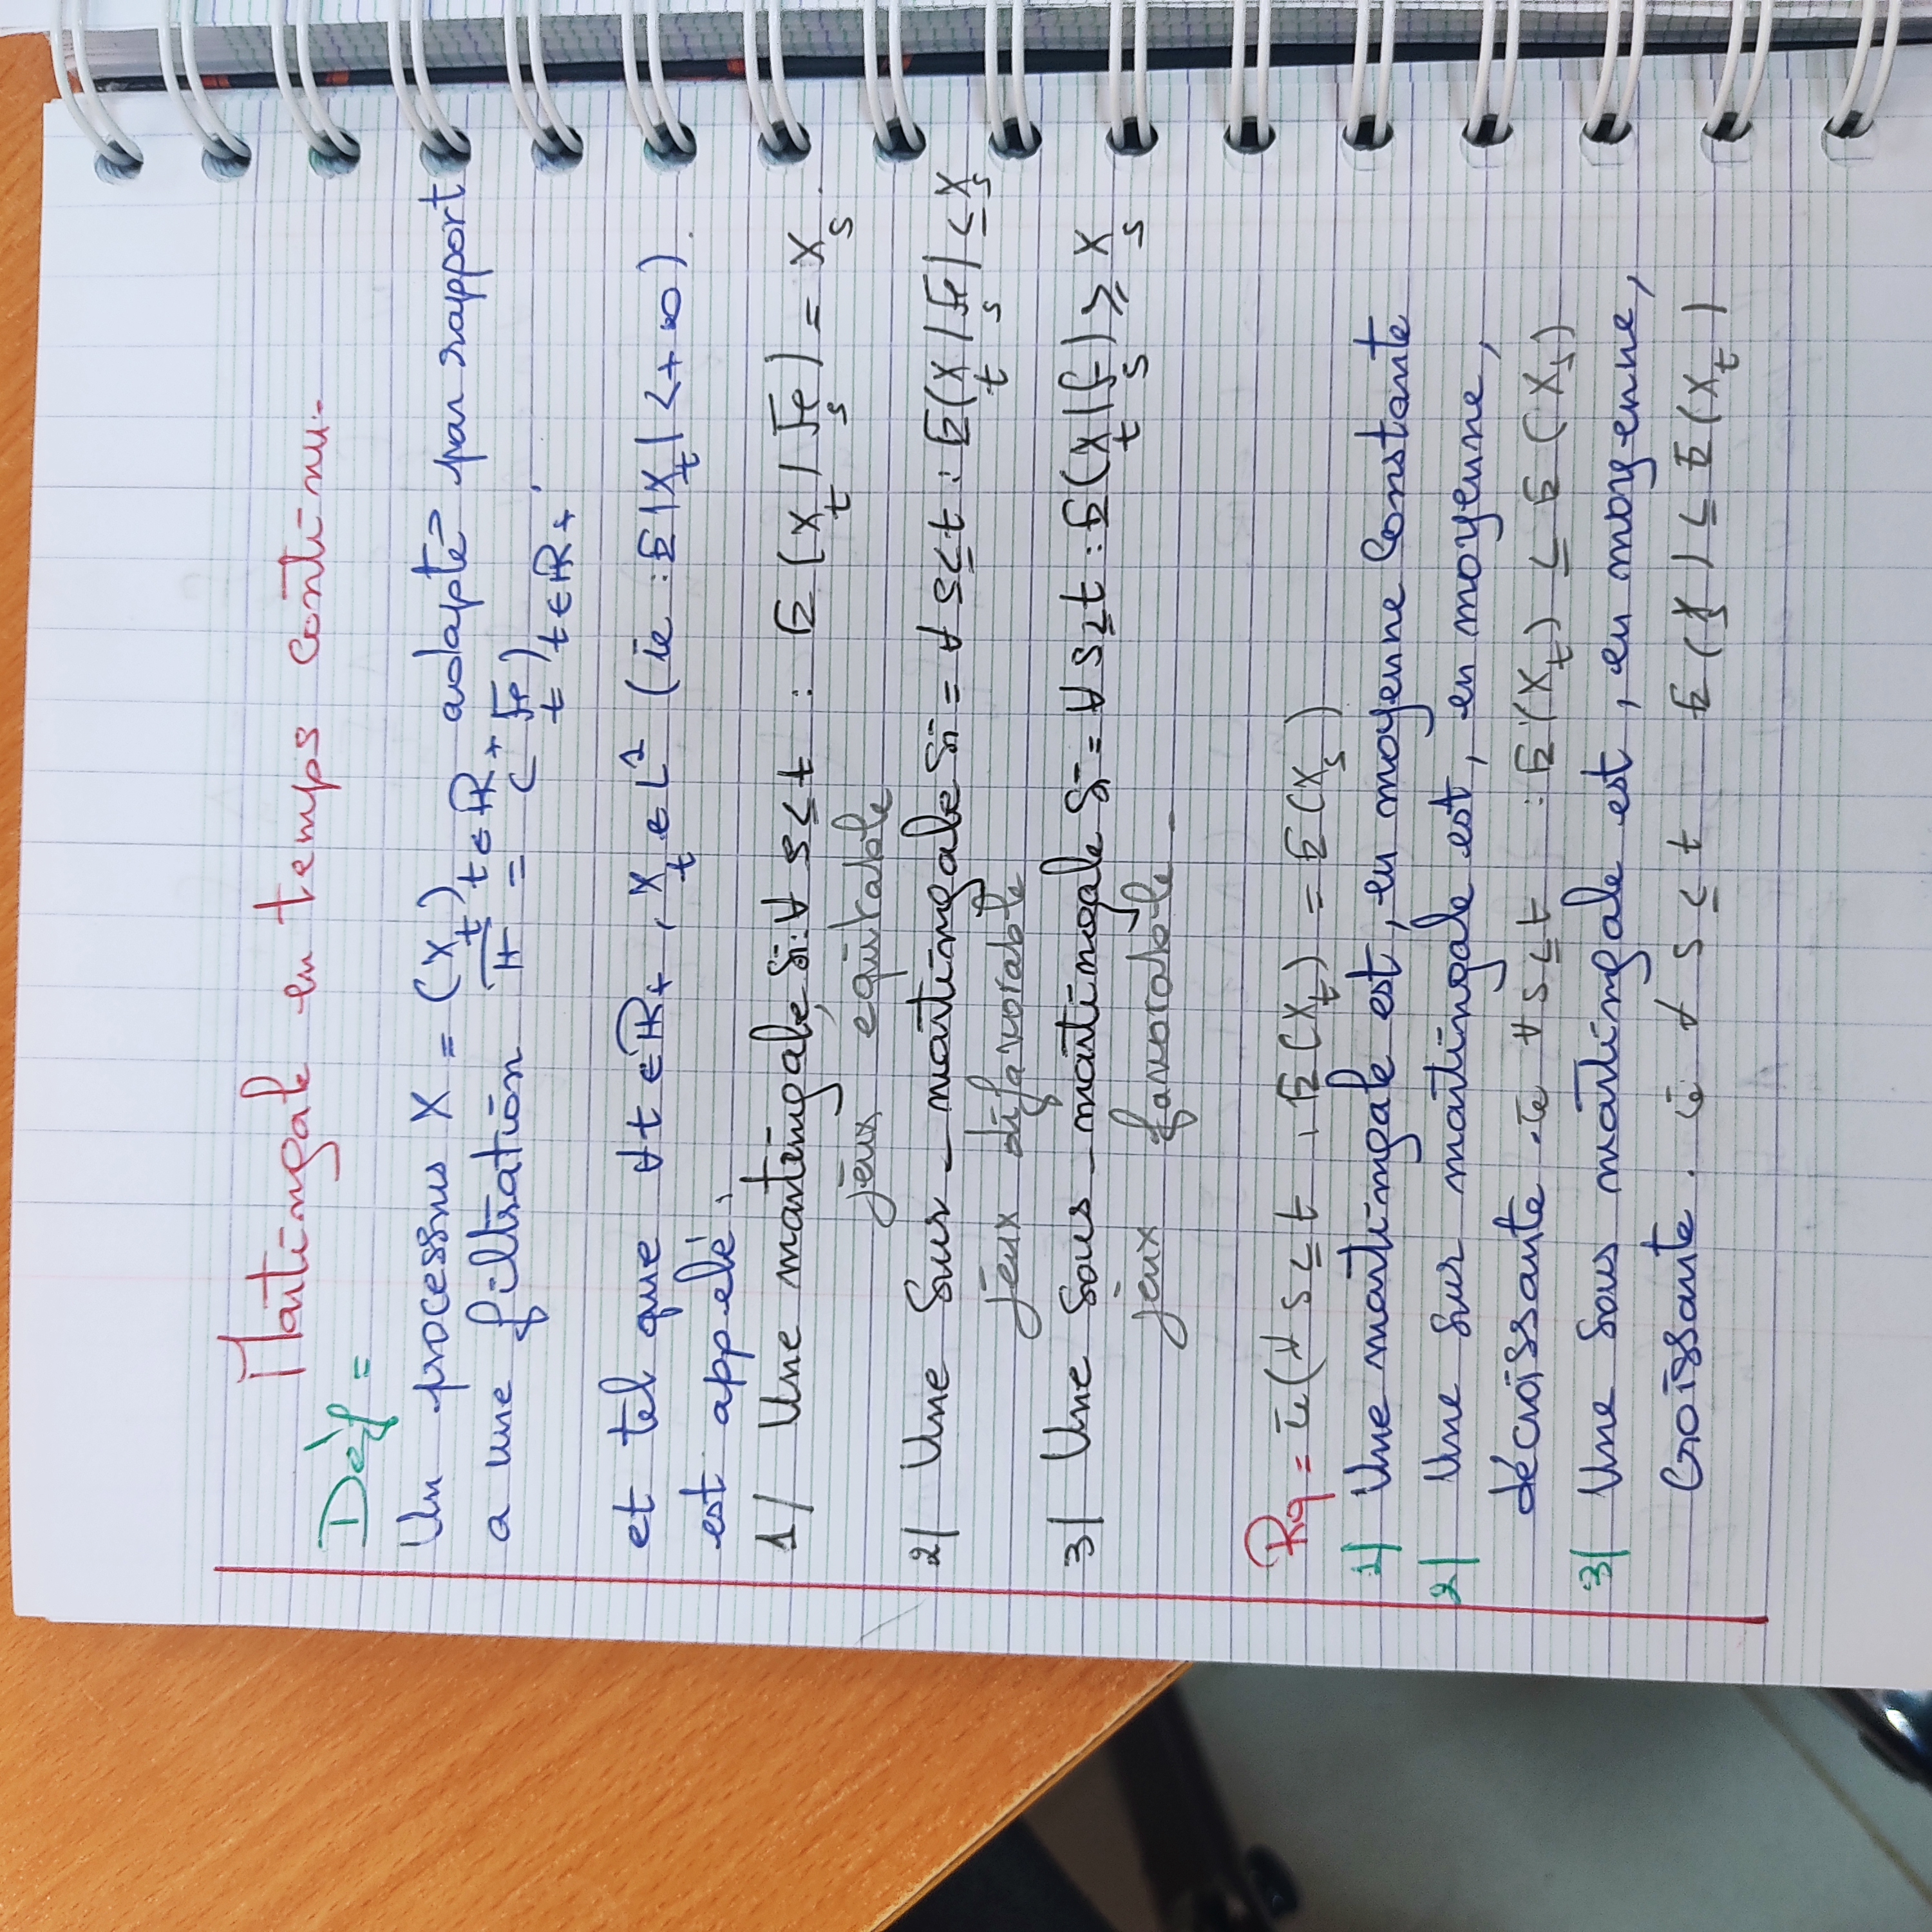 Martingale en temps continu.
Déf =
Un processus X = (X_t)_{t∈ℝ₊} adapté par rapport
a une filtration 𝔽 = (ℱ_t)_{t∈ℝ₊}.
et tel que ∀t∈ℝ₊, X_t ∈ L¹ (ie : E|X_t| < +∞).
est appelé :
1/ Une martingale, Si: ∀ s≤t : E(X_t / ℱ_s) = X_s.
jeux équitable
2/ Une Sur-martingale Si = ∀ s≤t : E(X_t / ℱ_s) ≤ X_s
jeux difavorable
3/ Une Sous-martingale Si = ∀ s≥t : E(X_t | F_s) ≥ X_s
jeux favorable -
Rq = ie (∀ s≤t, E(X_t) = E(X_s)
1/ Une martingale est, en moyenne Constante
2/ Une Sur martingale est, en moyenne,
décroissante. ie ∀ s≤t : E(X_t) ≤ E(X_s)
3/ Une Sous martingale est, en moyenne,
Croissante. ie ∀ s≤t E(X_s) ≤ E(X_t)